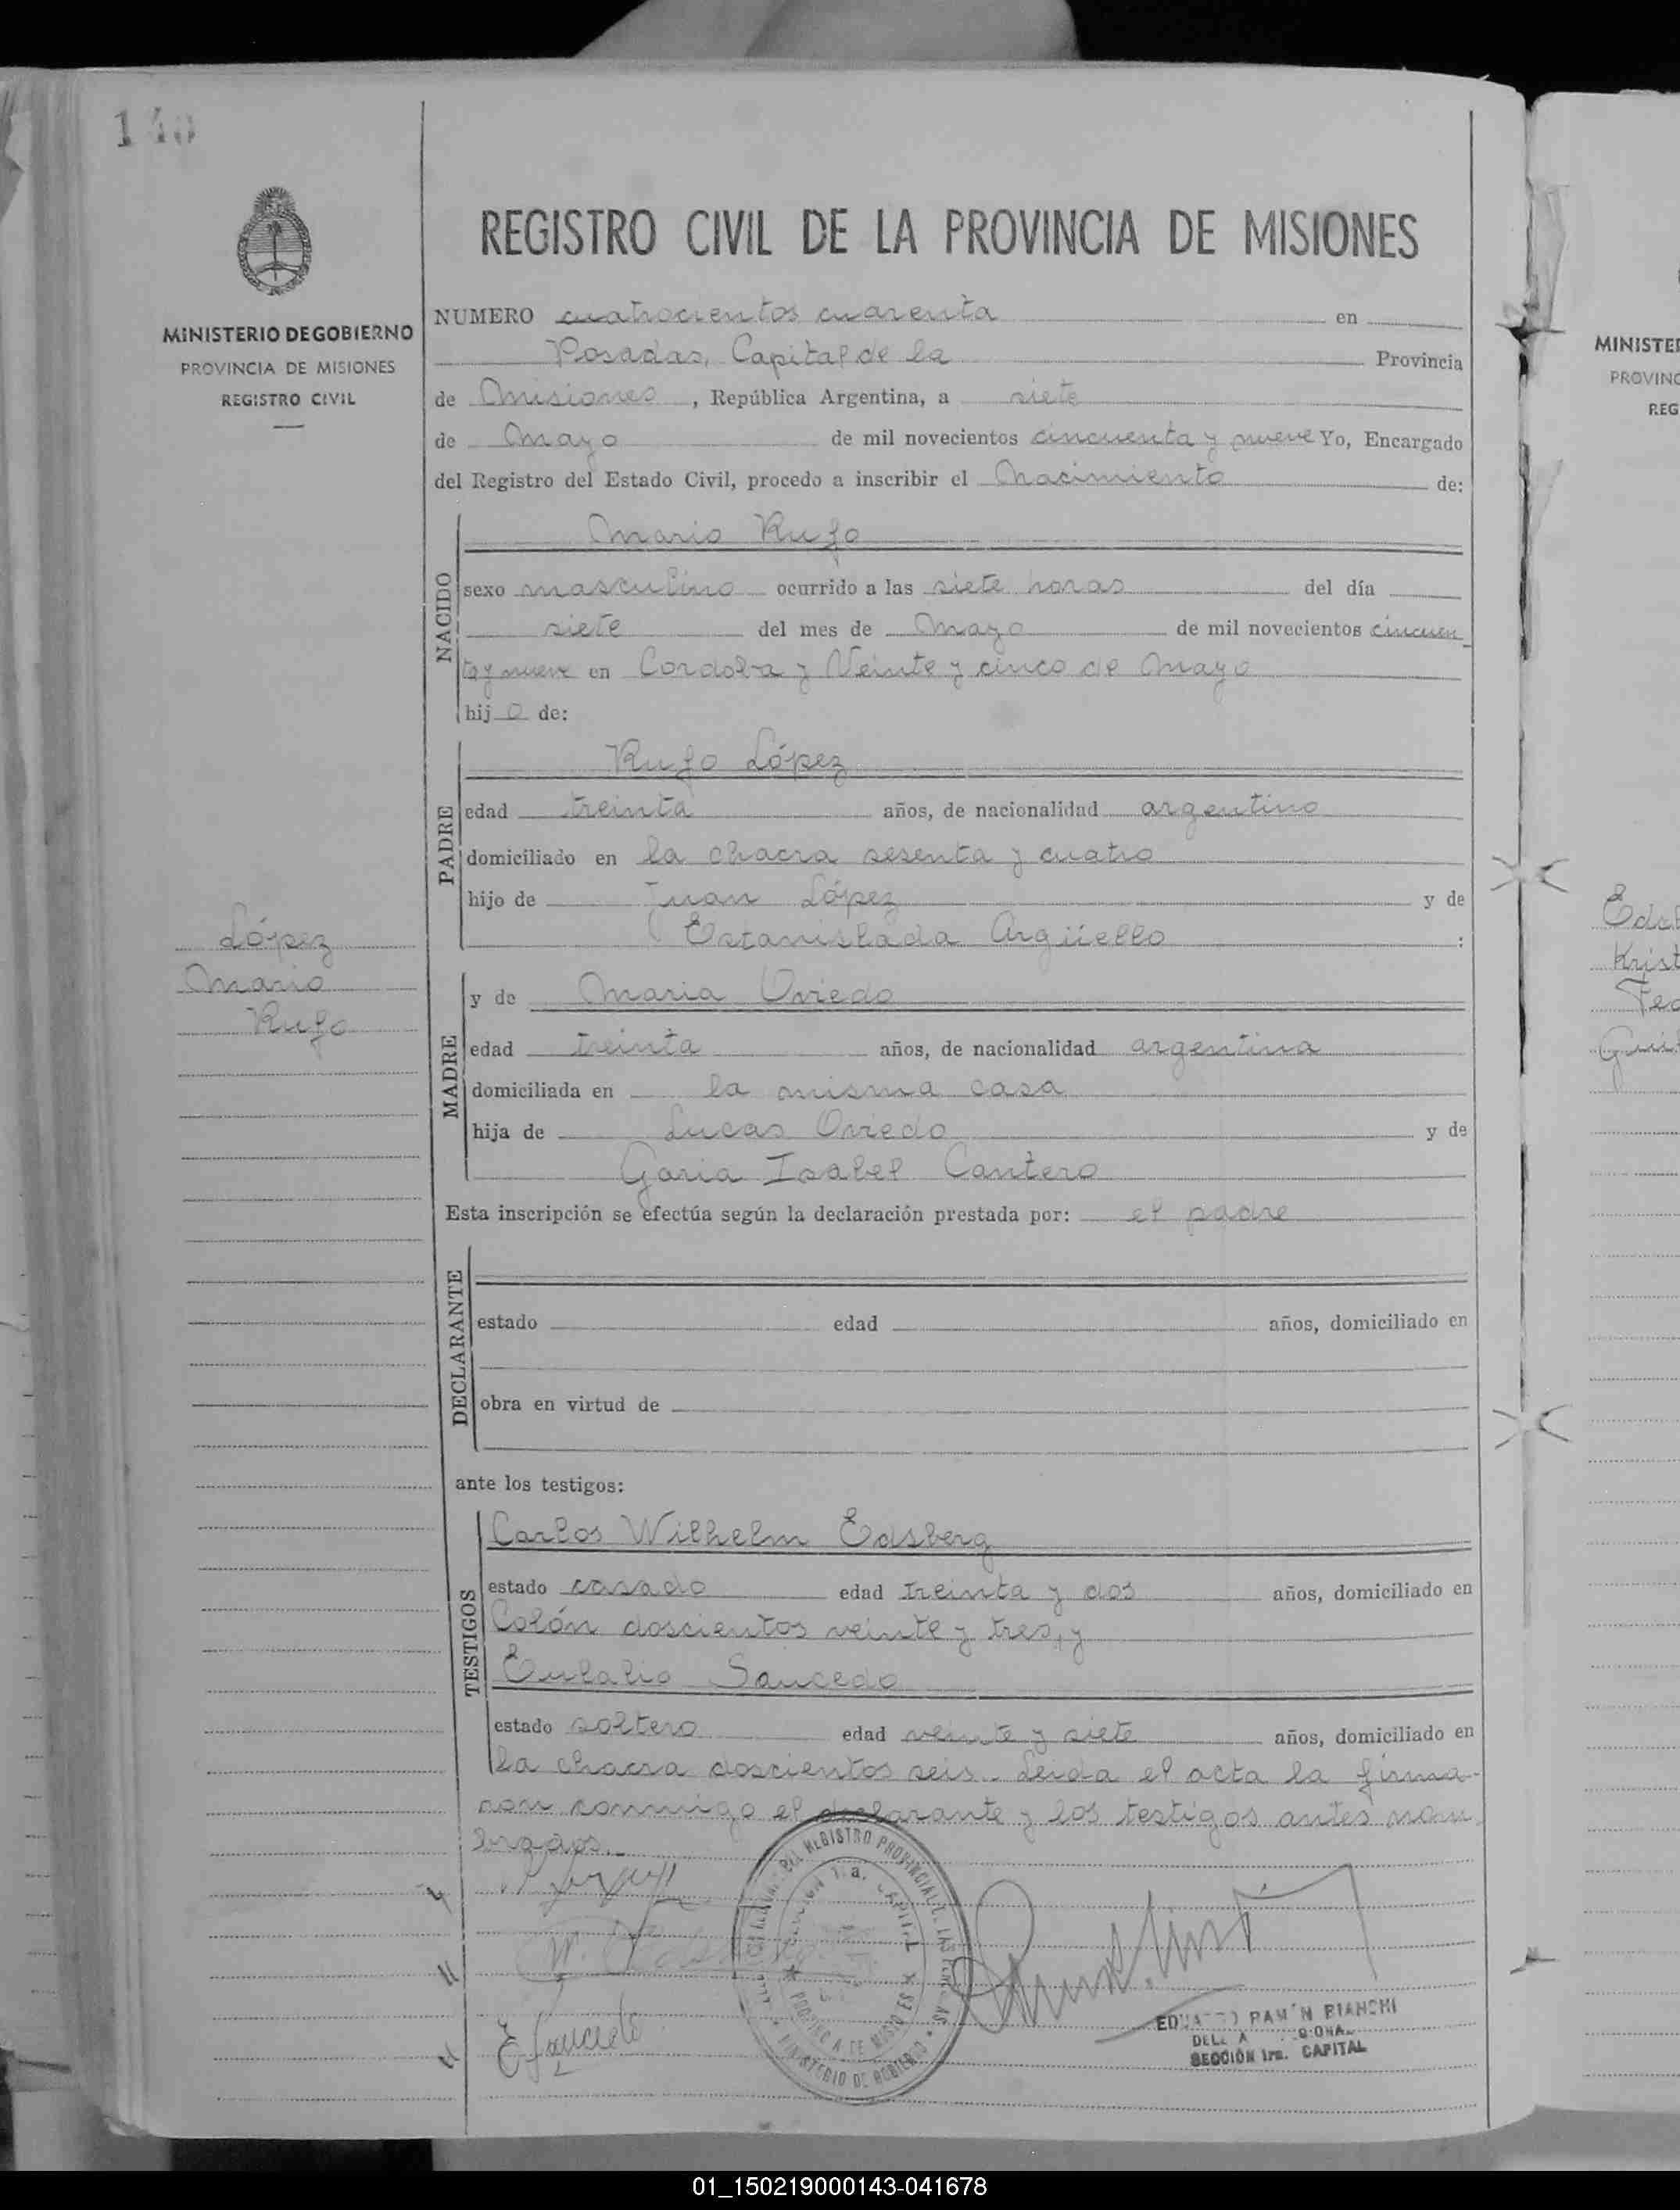 REGISTRO CIVIL DE LA PROVINCIA DE MISIONES
MINISTERIO DE GOBIERNO
PROVINCIA DE MISIONES
REGISTRO CIVIL
NUMERO cuatrocientos cuarenta en
Posadas, Capital de la Provincia
de Misiones, República Argentina, a siete
de Mayo de mil novecientos cincuenta y nueve Yo, Encargado
del Registro del Estado Civil, procedo a inscribir el Nacimiento de:
NACIDO
Mario Rufo
sexo masculino ocurrido a las siete horas del día
siete del mes de Mayo de mil novecientos cincuen
ta y nueve en Cordoba y Veinte y cinco de Mayo
hijo de:
PADRE
Rufo López
edad treinta años, de nacionalidad argentino
domiciliado en la chacra sesenta y cuatro
hijo de Juan López y de
Estanislada Argüello :
López
Mario
Rufo
MADRE
y de Maria Oviedo
edad treinta años, de nacionalidad argentina
domiciliada en la misma casa
hija de Lucas Oviedo y de
Garia Isabel Cantero
Esta inscripción se efectúa según la declaración prestada por: el padre
DECLARANTE
estado edad años, domiciliado en
obra en virtud de
ante los testigos:
TESTIGOS
Carlos Wilhelm Edsberg
estado casado edad treinta y dos años, domiciliado en
Colón doscientos veinte y tres, y
Eulalio Saucedo
estado soltero edad veinte y siete años, domiciliado en
la chacra doscientos seis. Leida el acta la firma-
ron conmigo el declarante y los testigos antes nom
brados.
E Saucedo
RAMON BIANCHI
SECCIÓN 1ra. CAPITAL
MINISTERIO DE GOBIERNO
01_150219000143-041678